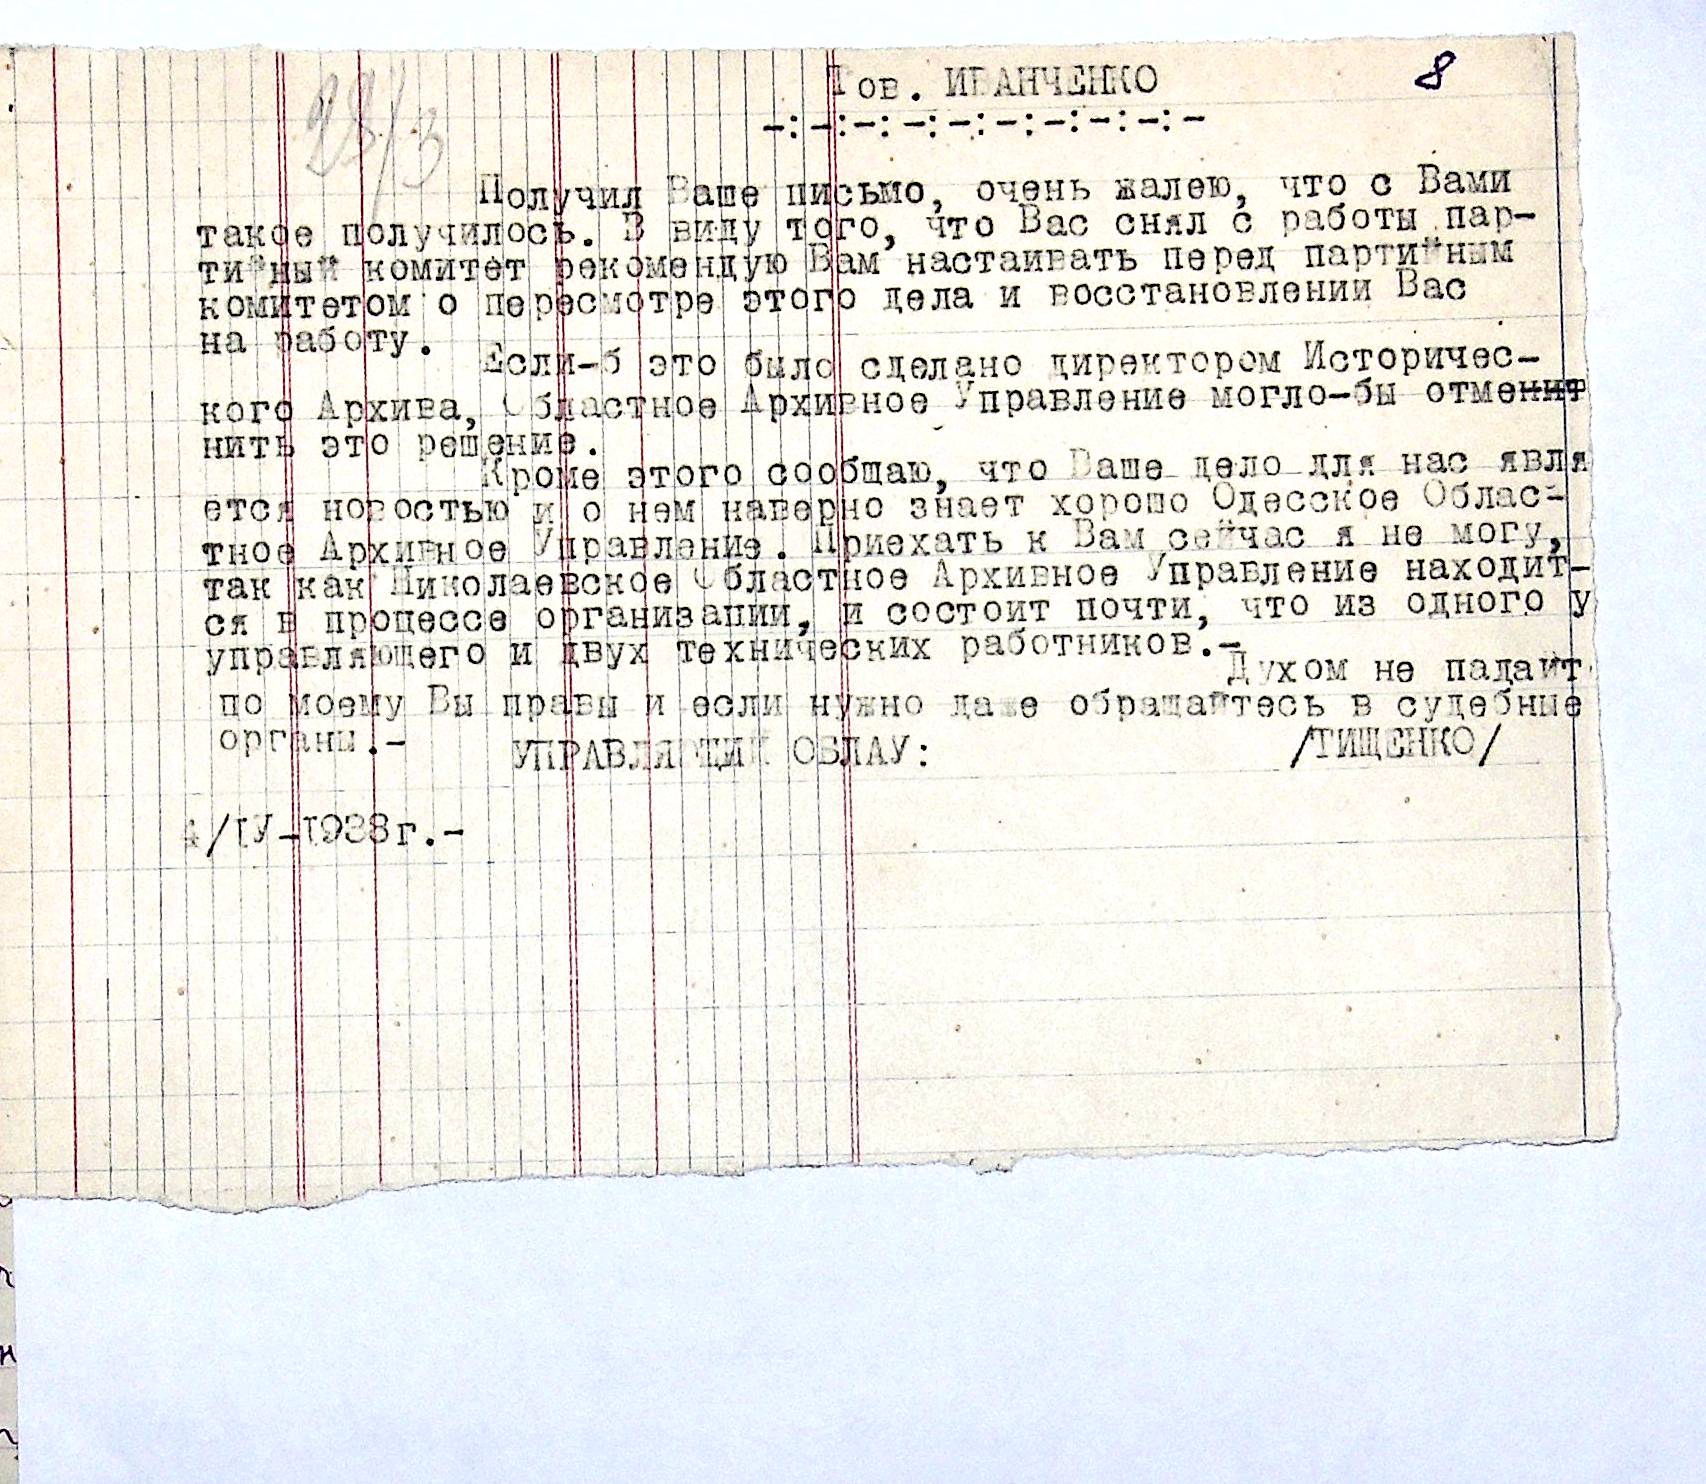 8
Тов. ИВАНЧЕНКО
-:-:-:-:-:-:-:-:-:-
28/3
Получил Ваше письмо, очень жалею, что с Вами
такое получилось. В виду того, что Вас снял с работы пар-
тийный комитет рекомендую Вам настаивать перед партийным
комитетом о пересмотре этого дела и восстановлении Вас
на работу.
Если-б это было сделано директором Историчес-
кого Архива, Областное Архивное Управление могло-бы отменит
нить это решение.
Кроме этого сообщаю, что Ваше дело для нас явля
ется новостью и о нем наверно знает хорошо Одесское Облас-
тное Архивное Управление. Приехать к Вам сейчас я не могу,
так как Николаевское Областное Архивное Управление находит-
ся в процессе организации, и состоит почти, что из одного у
управляющего и двух технических работников.-
Духом не падайт
по моему Вы правы и если нужно даже обращайтесь в судебные
органы.-
УПРАВЛЯЮЩИЙ ОБЛАУ: /ТИЩЕНКО/
4/IУ-1938г.-